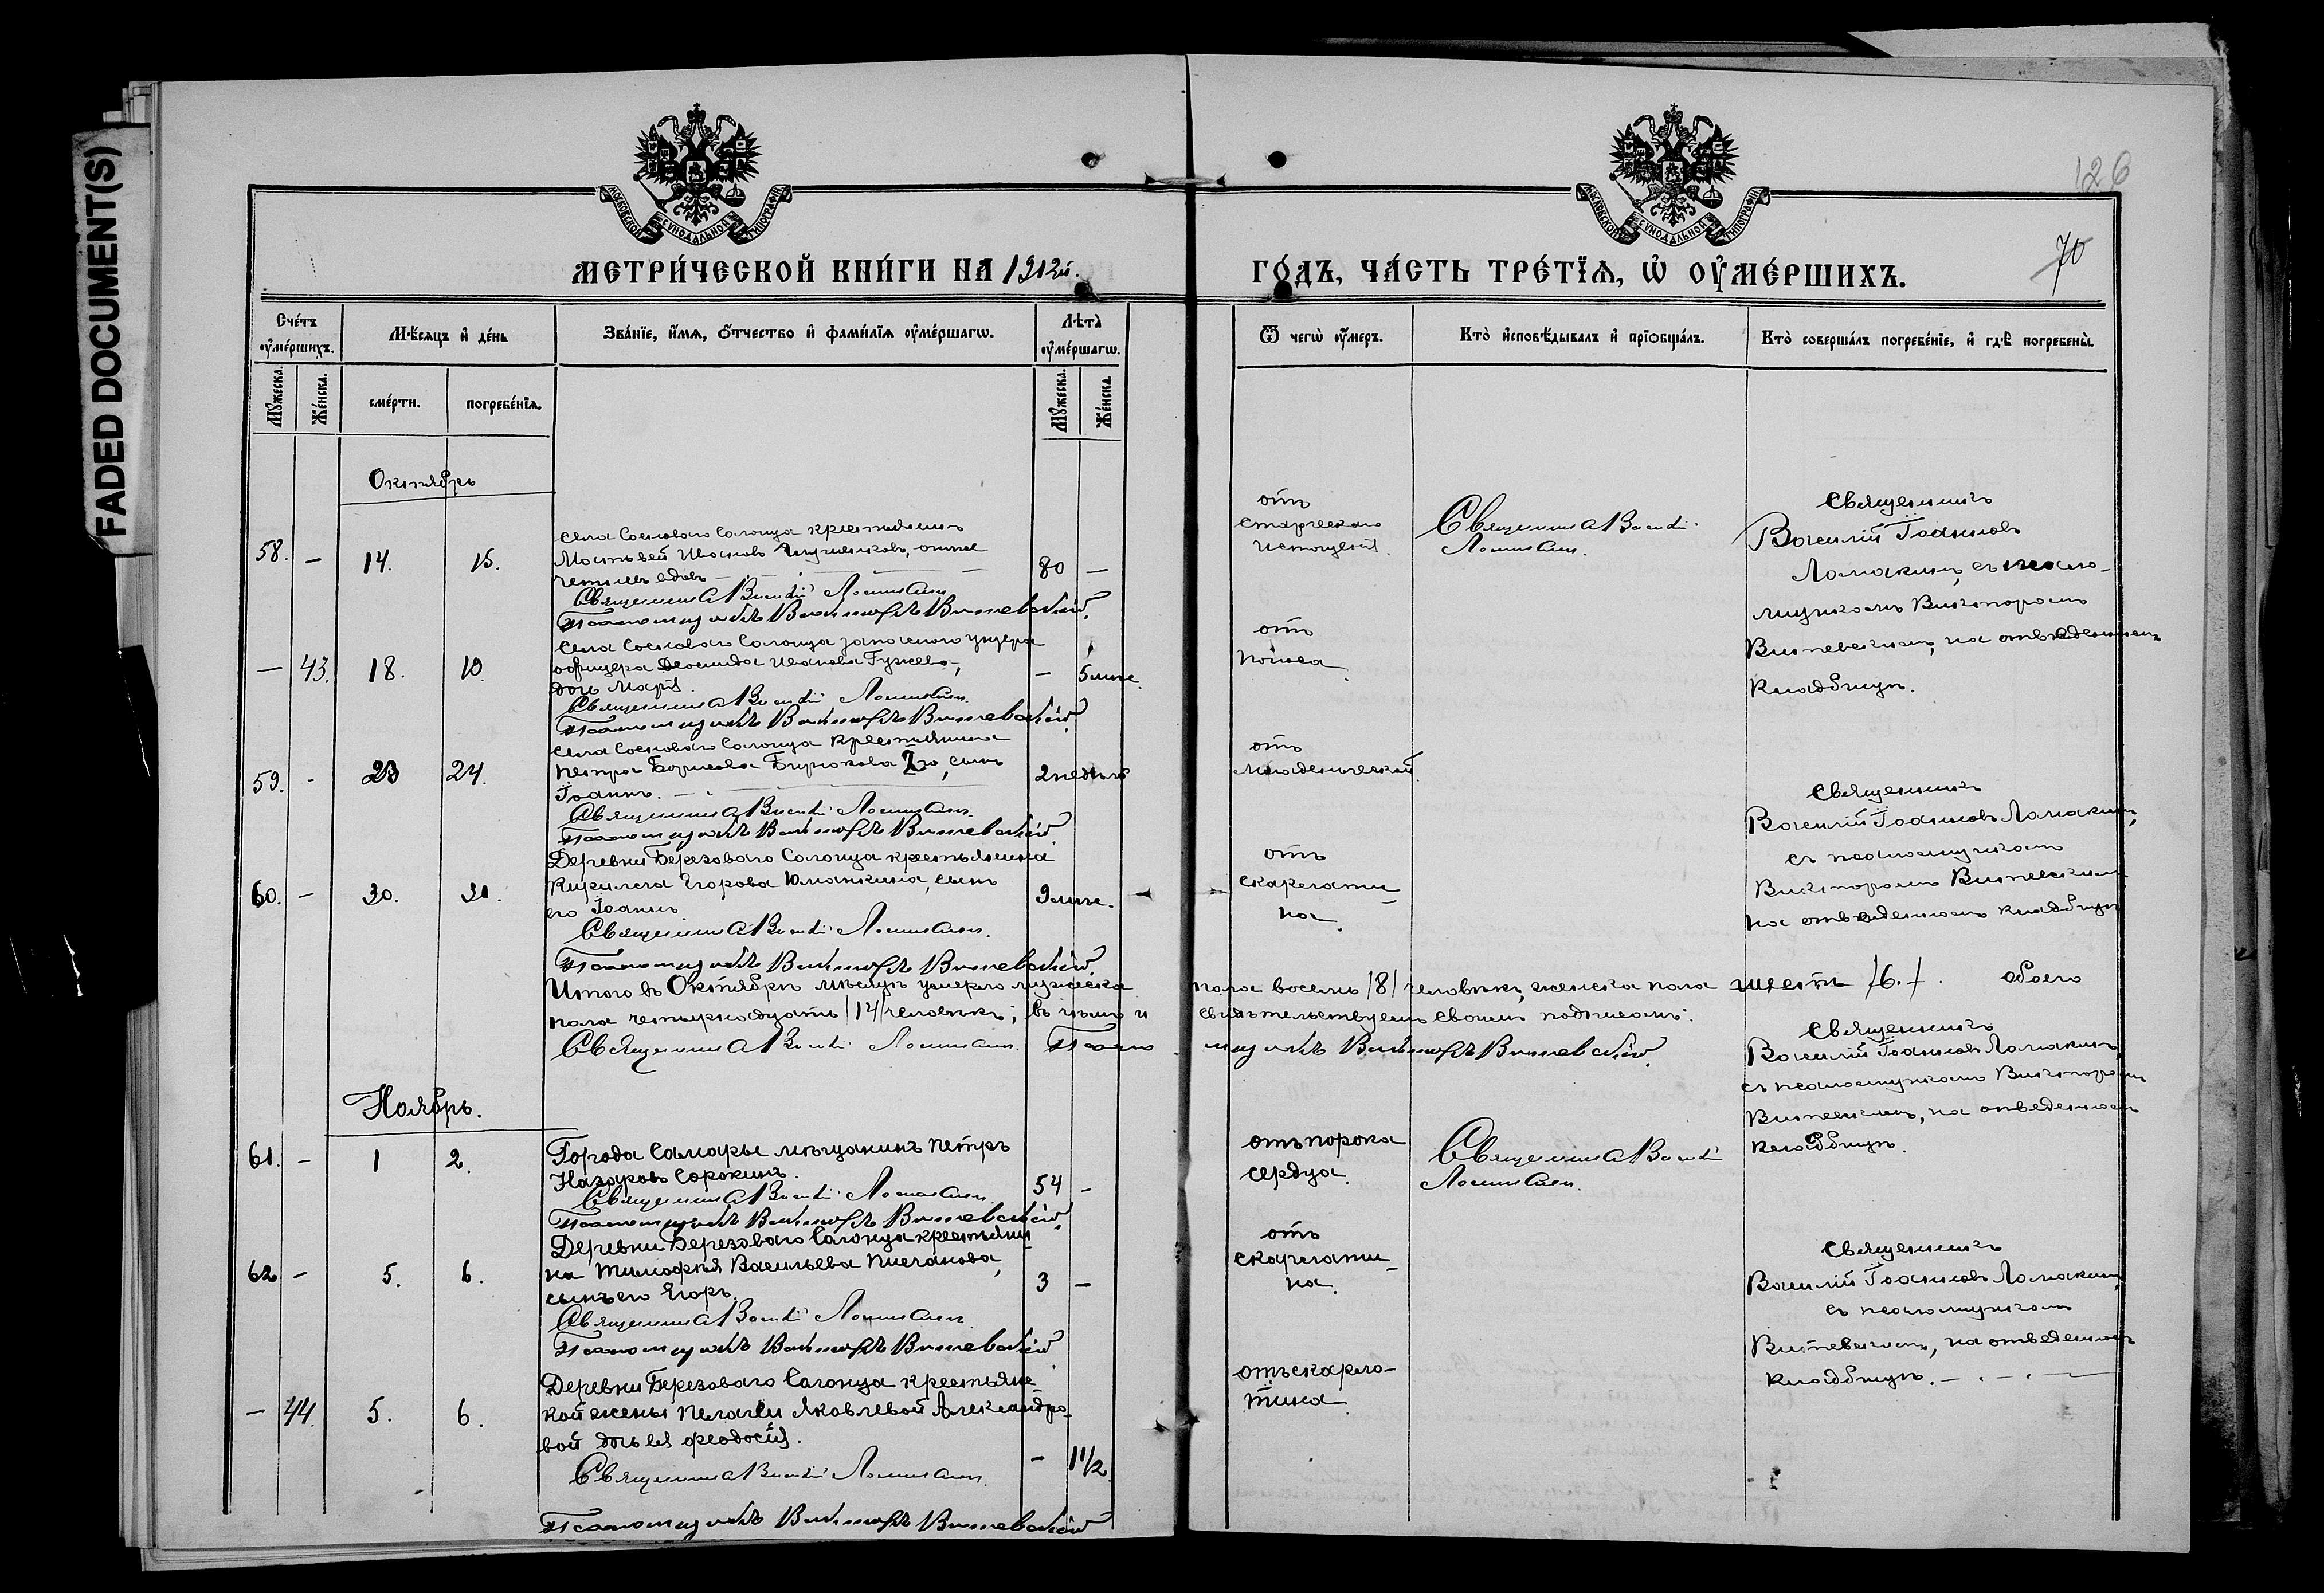 FADED DOCUMENT(S)
МОСКОВСКОЙ СѴНОДАЛЬНОЙ ТИПОГРАФІИ
МОСКОВСКОЙ СѴНОДАЛЬНОЙ ТИПОГРАФІИ
126
70
МЕТРИ́ЧЕСКОЙ КНИ́ГИ НА 1912й.
ГО́ДЪ, ЧА́СТЬ ТРЕ́ТЇѦ, Ѡ҆ ОУ҆МЕ́РШИХЪ.
Сче́тъ оу҆ме́ршихъ.
Мѣ́сяцъ и҆ де́нь
Зва́нїе, и҆́мѧ, ѻ҆́тчество и҆ фами́лїѧ оу҆ме́ршагѡ.
Лѣ̀та оу҆ме́ршагѡ.
Ѿ чегѡ̀ оу҆́меръ.
Кто̀ и҆сповѣ́дывалъ и҆ прїѡбща́лъ.
Кто̀ соверша́лъ погребе́нїе, и҆ гдѣ̀ погребены̀.
Мꙋ́жеска.
Же́нска.
сме́рти.
погребе́нїѧ.
Мꙋ́жеска.
Же́нска.
Октябрь
58. – 14. 15.
Села Сосноваго Солонца крестьянинъ
Матвѣй Ивановъ
80 –
Священникъ Василій Ломакинъ
Псаломщикъ Викторъ Виневскій.
отъ
старческаго
истощенія.
Священникъ Василій
Ломакинъ.
Священникъ
Василій Іоанновъ
Ломакинъ, съ псало-
мщикомъ Викторомъ
Виневскимъ, на отведенномъ
кладбищѣ.
– 43. 18. 10.
Села Сосноваго Солонца запаснаго унтеръ
офицера Леонида Иванова
дочь Марія.
– 5 мис.
Священникъ Василій Ломакинъ.
Псаломщикъ Викторъ Виневскій.
отъ
поноса
59. - 23 24.
Села Сосноваго Солонца крестьянина
Петра Борисова Бирюкова 2го, сынъ
Іоаннъ.
2 недѣли
Священникъ Василій Ломакинъ.
Псаломщикъ Викторъ Виневскій.
отъ
младенческой.
Священникъ
Василій Іоанновъ Ломакинъ,
съ псаломщикомъ
Викторомъ Виневскимъ
на отведенномъ кладбищѣ
60. – 30. 31.
Деревни Березоваго Солонца крестьянина
Кирилла Егорова Юманкина, сынъ
его Іоаннъ
9 мис. –
Священникъ Василій Ломакинъ.
Псаломщикъ Викторъ Виневскій.
отъ
скарлати-
на.
Итого въ Октябрѣ мѣсяцѣ умерло мужеска
пола восемь /8/ человѣкъ, женска пола шесть /6./. обоего
пола четырнадцать /14/ человѣкъ; въ чемъ и
свидѣтельствуемъ своимъ подписомъ:
Священникъ Василій Ломакинъ. Псало
мщикъ Викторъ Виневскій.
Ноябрь.
61. – 1 2.
Города Самары мѣщанинъ Петръ
Назаровъ Сорокинъ.
54 –
Священникъ Василій Ломакинъ.
Псаломщикъ Викторъ Виневскій.
отъ порока
сердца.
Священникъ Василій
Ломакинъ.
Священникъ
Василій Іоанновъ Ломакинъ,
съ псаломщикомъ Викторомъ
Виневскимъ, на отведенномъ
кладбищѣ.
62 – 5. 6.
Деревни Березоваго Солонца крестьяни-
на Тимофея Васильева Писчакова,
сынъ его Егоръ.
3 –
Священникъ Василій Ломакинъ.
Псаломщикъ Викторъ Виневскій.
отъ
скарлати-
на.
Священникъ
Василій Іоанновъ Ломакинъ,
съ псаломщикомъ
Виневскимъ, на отведенномъ
кладбищѣ.
– 44. 5. 6.
Деревни Березоваго Солонца крестьянс-
кой жены Пелагеи Яковлевой Александро-
вой дочь ея Феодосія.
– 1 1/2
Священникъ Василій Ломакинъ.
Псаломщикъ Викторъ Виневскій
отъ скарла-
тина.